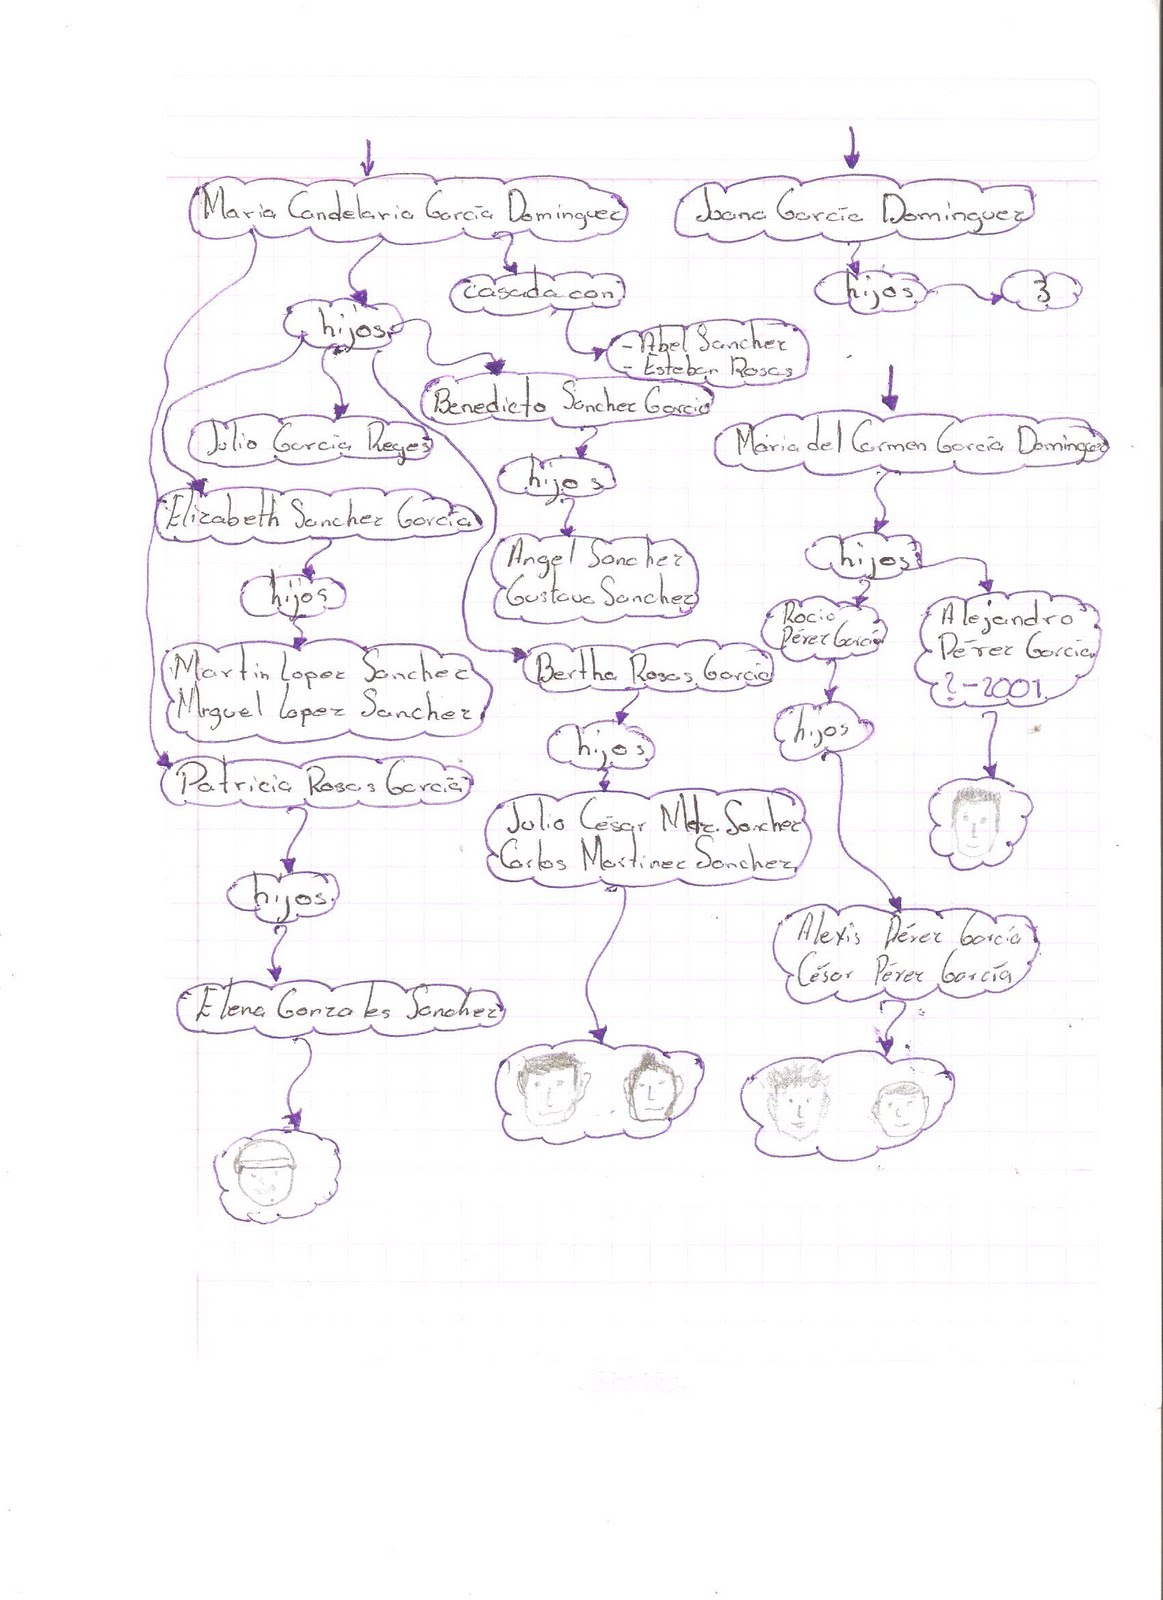 Maria Candelaria García Domínguez
Joana García Domínguez
casada con
hijos
3
hijos
- Abel Sanchez
- Esteban Rosas
Benedicto Sanchez Garcia
Julio García Reyes
Maria del Carmen García Domínguez
hijos
Elizabeth Sanchez García
Angel Sanchez
Gustavo Sanchez
hijos
hijos
Rocio
Pérez García
Alejandro
Pérez García
?-2001
Martin Lopez Sanchez
Miguel Lopez Sanchez
Bertha Rosas García
hijos
hijos
Patricia Rosas García
Julio César Mtz. Sanchez
Carlos Martinez Sanchez
hijos
Alexis Pérez García
César Pérez García
Elena Gonzales Sanchez